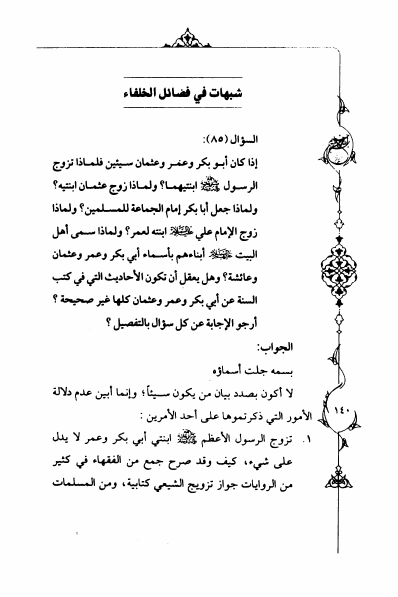 شبهات في فضائل الخلفاء
السؤال (٨٥):
إذا كان أبو بكر وعمر وعثمان سيئين فلماذا تزوج
الرسول ﷺ ابنتيهما؟ ولماذا زوج عثمان ابنتيه؟
ولماذا جعل أبا بكر إمام الجماعة للمسلمين؟ ولماذا
زوج الإمام علي ابنته لعمر؟ ولماذا سمى أهل
البيت أبناءهم بأسماء أبي بكر وعمر وعثمان
وعائشة؟ وهل يعقل أن تكون الأحاديث التي في كتب
السنة عن أبي بكر وعمر وعثمان كلها غير صحيحة؟
أرجو الإجابة عن كل سؤال بالتفصيل؟
الجواب:
بسمه جلت أسماؤه
لا أكون بصدد بيان من يكون سيئاً؛ وإنما أبين عدم دلالة
الأمور التي ذكرتموها على أحد الأمرين:
١. تزوج الرسول الأعظم ﷺ ابنتي أبي بكر وعمر لا يدل
على شيء، كيف وقد صرح جمع من الفقهاء في كثير
من الروايات جواز تزويج الشيعي كتابية، ومن المسلمات
١٤٠